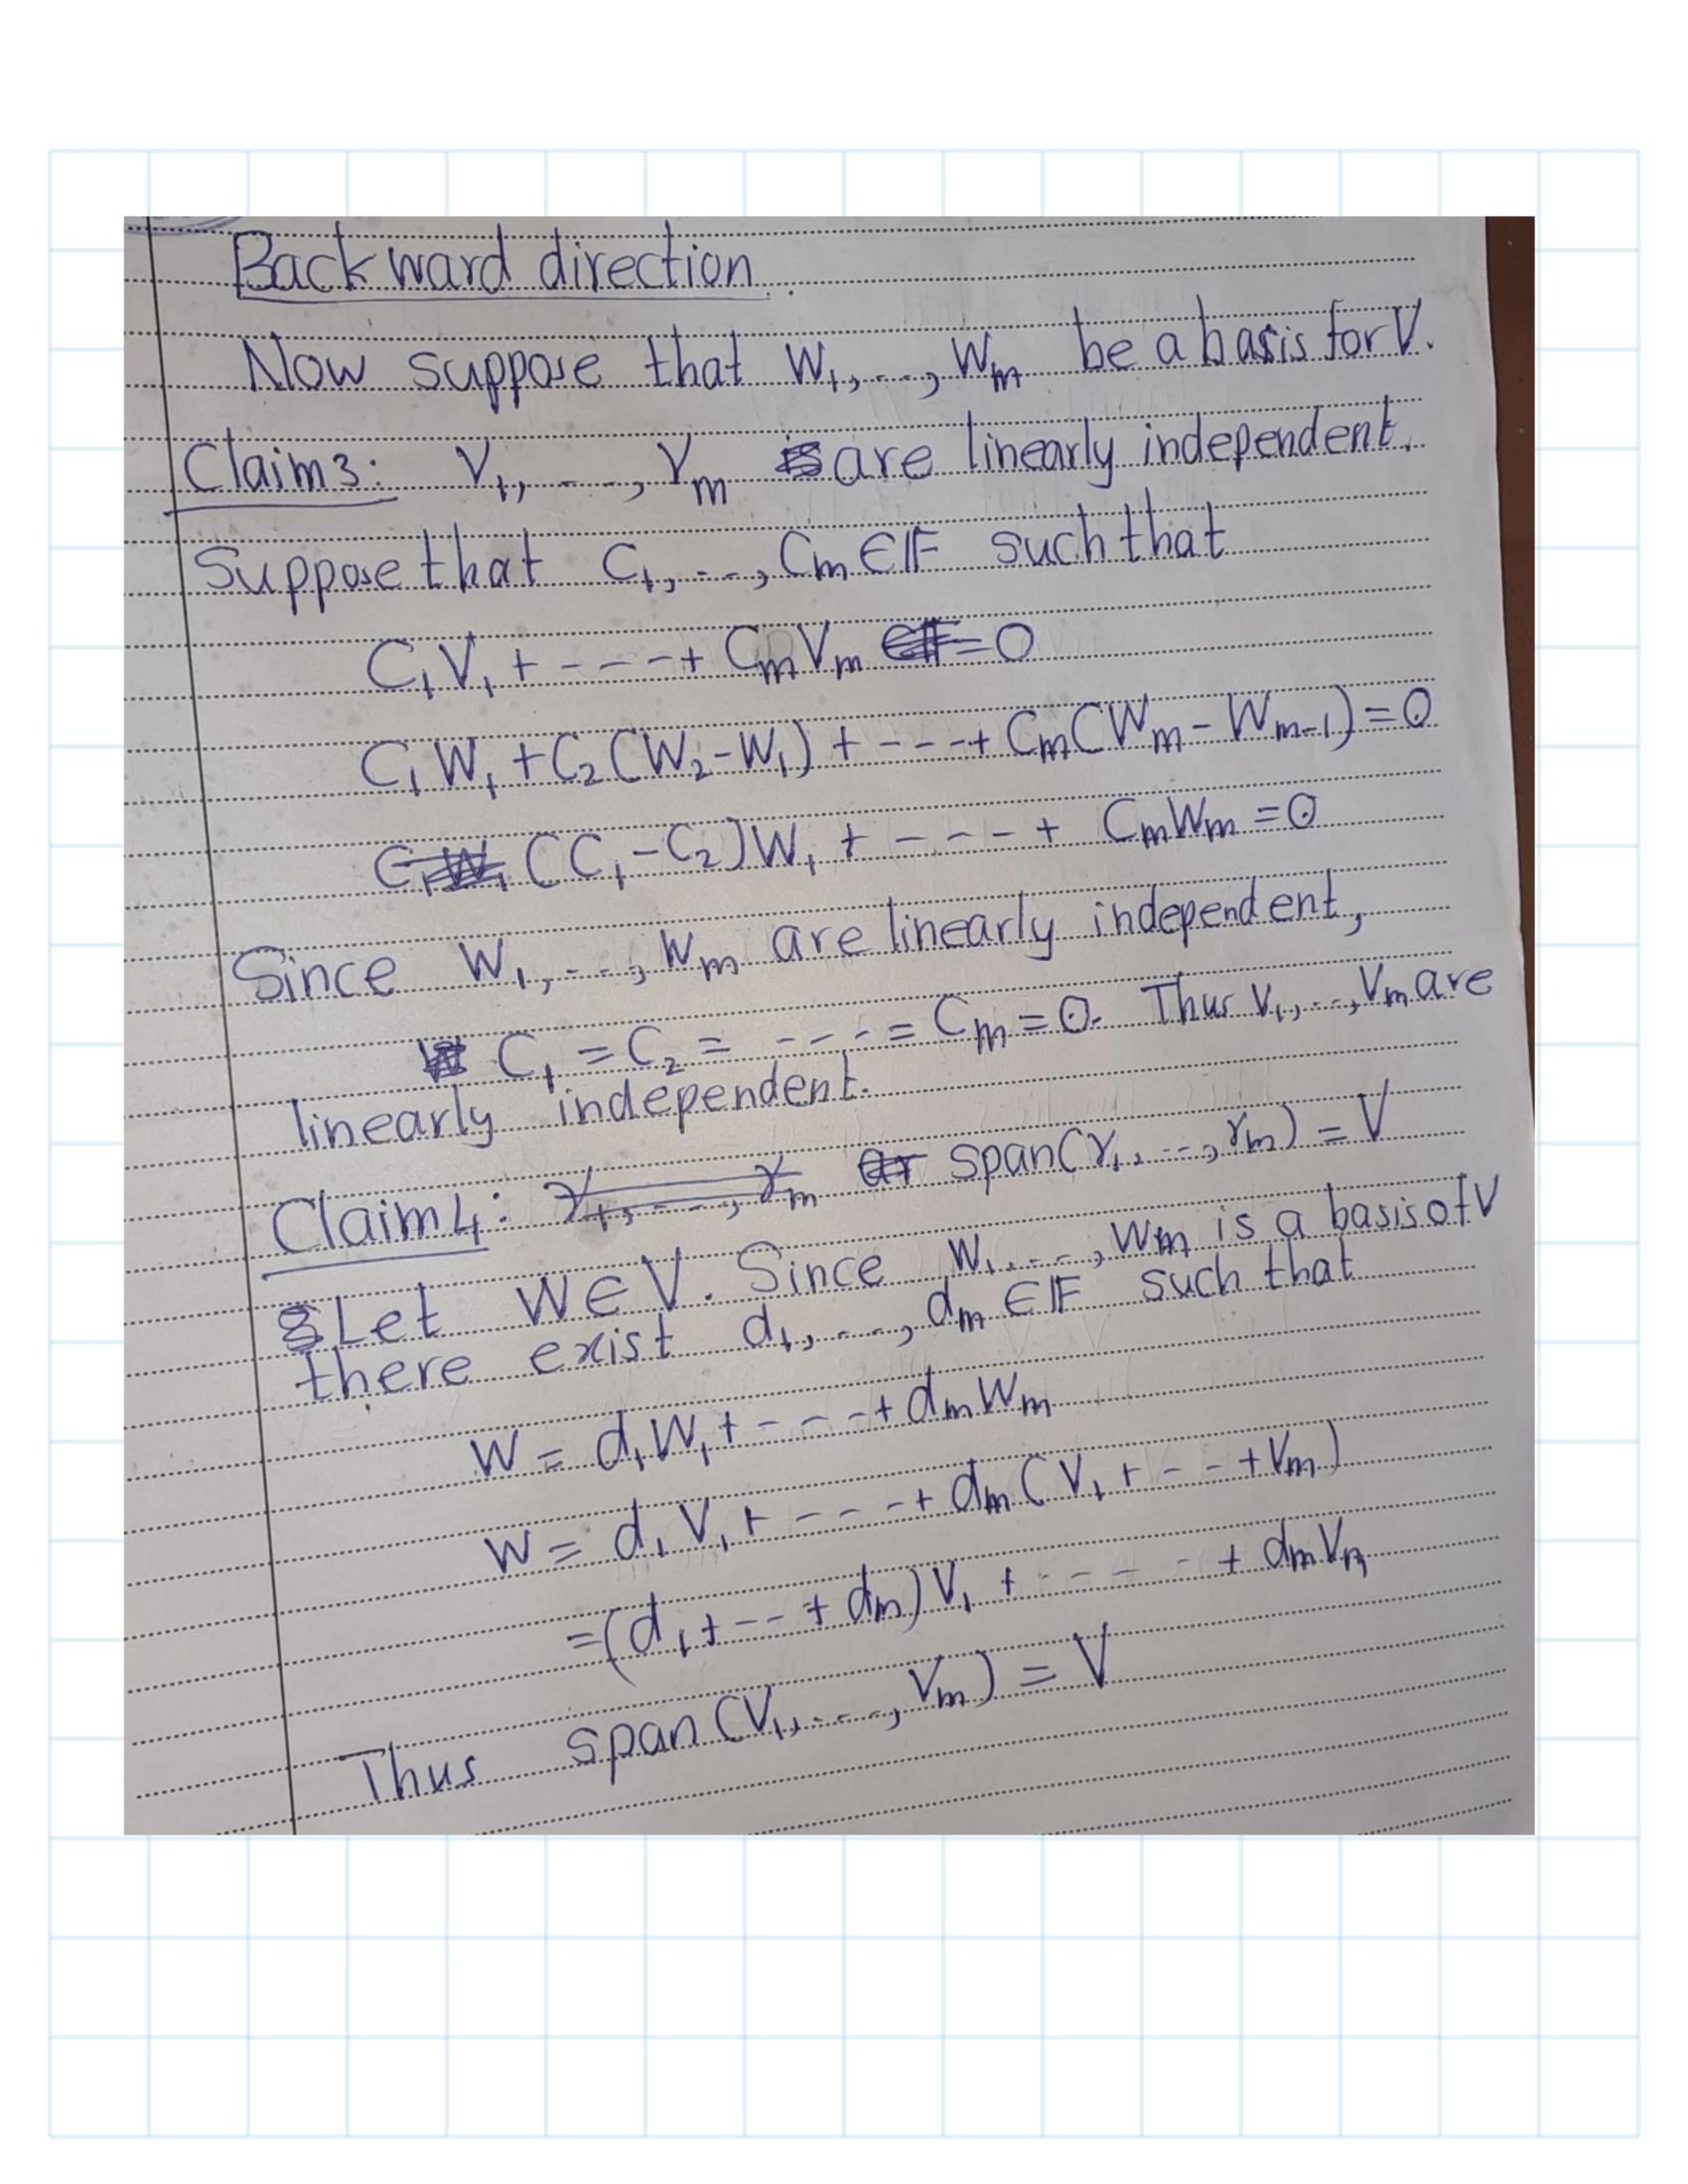 Backward direction.
Now suppose that W₁, ..., Wₘ be a basis for V.
Claim 3: V₁, ..., Vₘ are linearly independent.
Suppose that C₁, ..., Cₘ ∈ 𝔽 such that
C₁V₁ + ---- + CₘVₘ = 0
C₁W₁ + C₂(W₂ - W₁) + ---- + Cₘ(Wₘ - Wₘ₋₁) = 0
(C₁ - C₂)W₁ + ---- + CₘWₘ = 0
Since W₁, ..., Wₘ are linearly independent,
C₁ = C₂ = ---- = Cₘ = 0. Thus V₁, ..., Vₘ are
linearly independent.
Claim 4: span(V₁, ..., Vₘ) = V
Let W ∈ V. Since W₁, ..., Wₘ is a basis of V
there exist d₁, ..., dₘ ∈ 𝔽 such that
W = d₁W₁ + ---- + dₘWₘ
W = d₁V₁ + ---- + dₘ(V₁ + --- + Vₘ)
= (d₁ + --- + dₘ)V₁ + ---- + dₘVₘ
Thus span(V₁, ..., Vₘ) = V